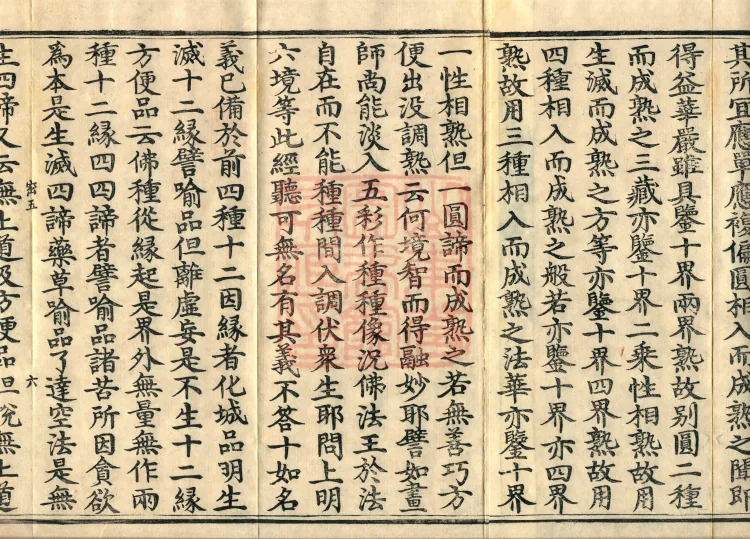 其所宜應單應複偏圓相入而成熟之障即
得益華嚴雖具鑒十界兩界熟故别圓二種
而成熟之三藏亦鑒十界二乘性相熟故用
生滅而成熟之方等亦鑒十界四界熟故用
四種相入而成熟之般若亦鑒十界亦四界
熟故用三種相入而成熟之法華亦鑒十界
一性相熟但一圓諦而成熟之若無善巧方
便出没調熟云何境智而得融妙耶譬如畫
師尚能淡入五彩作種種像況佛法王於法
自在而不能種種間入調伏衆生耶問上明
六境等此經聽可無名有其義不答十如名
義已備於前四種十二因緣者化城品明生
滅十二緣譬喻品但離虚妄是不生十二緣
方便品云佛種從緣起是界外無量無作兩
種十二緣四四諦者譬喻品諸苦所因貪欲
為本是生滅四諦藥草喻品了達空法是無
密五
六
生四諦又云無上道及方便品但說無上道